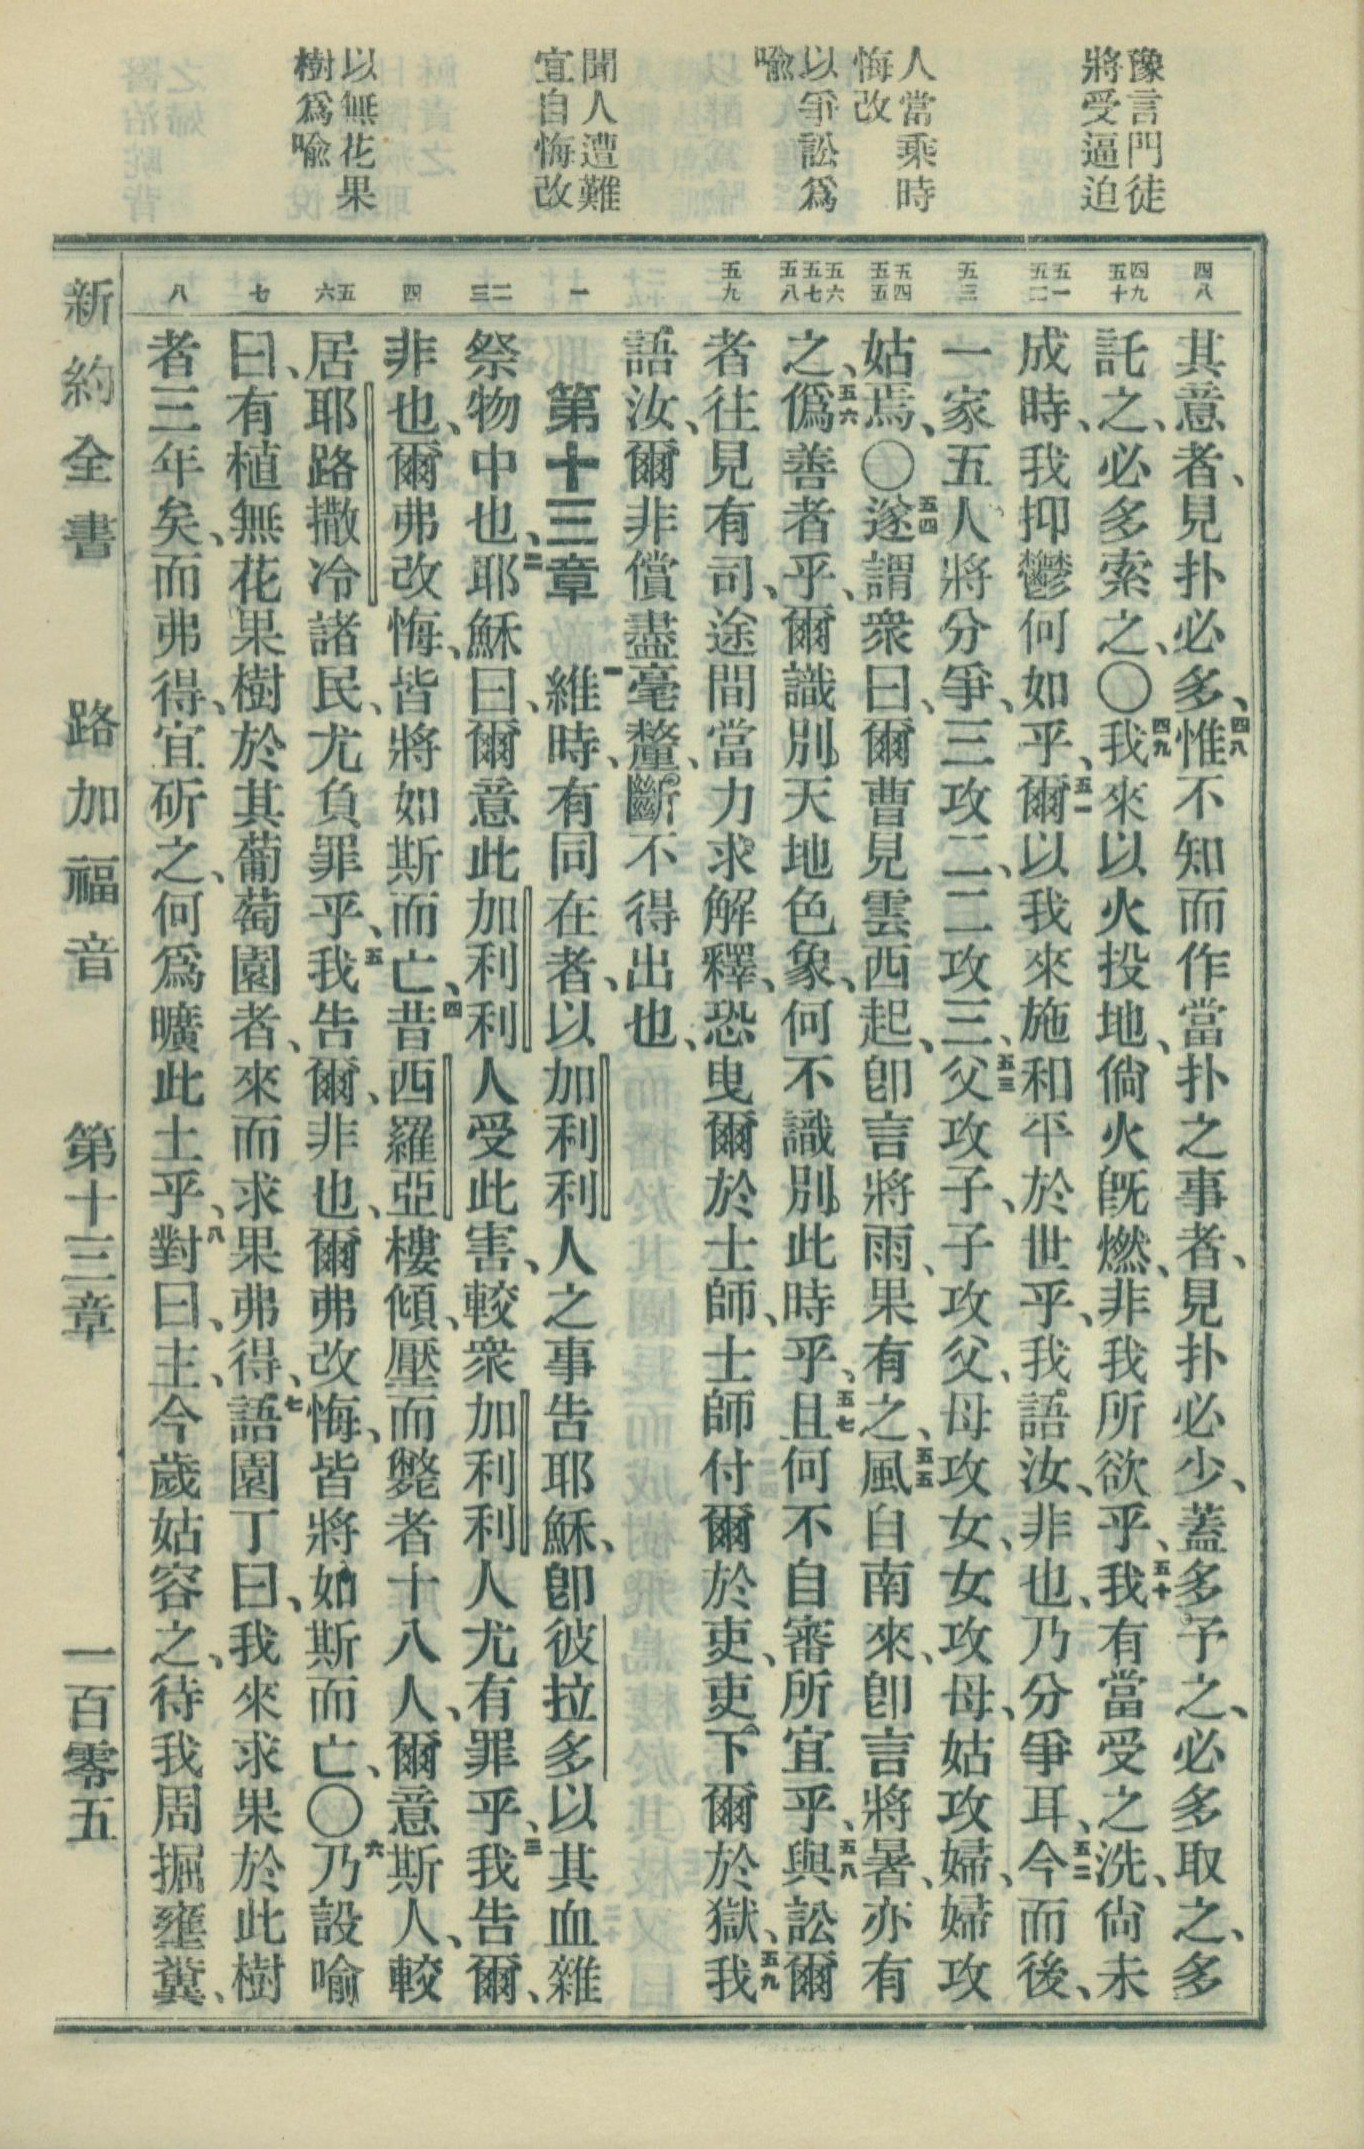 豫言門徒
將受逼迫
人當乘時
悔改
以爭訟爲
喩
聞人遭難
宜自悔改
以無花果
樹爲喩
四八
四九 五十
五一 五二
五三
五四 五五
五六 五七 五八
五九
一
二 三
四
五 六
七
八
其意者、見扑必多、四八惟不知而作當扑之事者、見扑必少、蓋多予之、必多取之、多
託之、必多索之、〇四九我來以火投地、倘火旣燃、非我所欲乎、五十我有當受之洗、尙未
成時、我抑鬱何如乎、五一爾以我來施和平於世乎、我語汝、非也、乃分爭耳、五二今而後、
一家五人、將分爭、三攻二、二攻三、五三父攻子、子攻父、母攻女、女攻母、姑攻婦、婦攻
姑焉、〇五四遂謂衆曰、爾曹見雲西起、卽言將雨、果有之、五五風自南來、卽言將暑、亦有
之、五六僞善者乎、爾識別天地色象、何不識別此時乎、五七且何不自審所宜乎、五八與訟爾
者往見有司、途間當力求解釋、恐曳爾於士師、士師付爾於吏、吏下爾於獄、五九我
語汝、爾非償盡毫釐、斷不得出也、
第十三章 一維時、有同在者、以加利利人之事告耶穌、卽彼拉多以其血雜
祭物中也、二耶穌曰、爾意此加利利人受此害、較衆加利利人尤有罪乎、三我告爾、
非也、爾弗改悔、皆將如斯而亡、四昔西羅亞樓傾、壓而斃者十八人、爾意斯人、較
居耶路撒冷諸民、尤負罪乎、五我告爾、非也、爾弗改悔、皆將如斯而亡、〇六乃設喩
曰、有植無花果樹於其葡萄園者、來而求果弗得、七語園丁曰、我來求果於此樹
者三年矣、而弗得、宜斫之、何爲曠此土乎、八對曰、主、今歲姑容之、待我周掘壅糞、
新約全書 路加福音 第十三章 一百零五